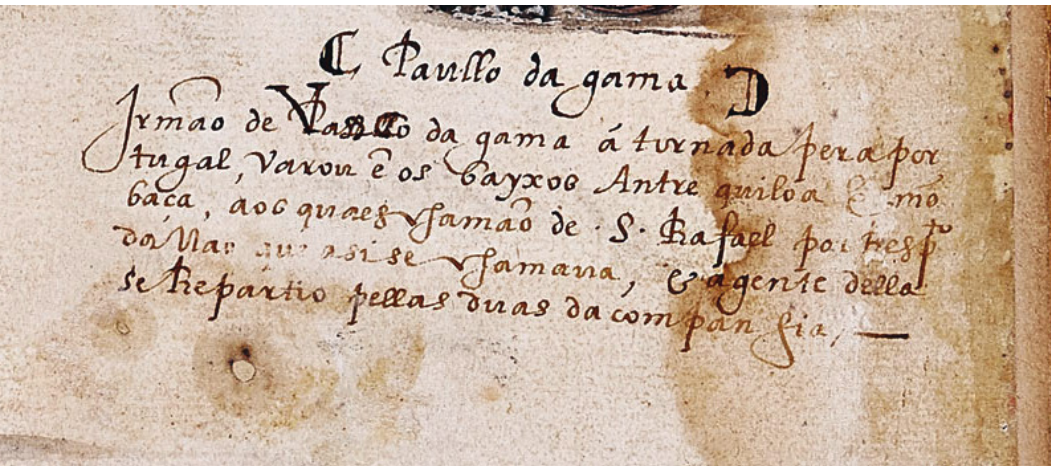 C Paullo da gama D
Irmão de Vasco da gama á tornada pera por
tugal, Varou ẽ os bayxos Antre quiloa E mõ
baça, aos quaes chamão de · S · Rafael por
da Nao que asi se chamaua, & agente della
se Repartio pellas duas da companhia, —